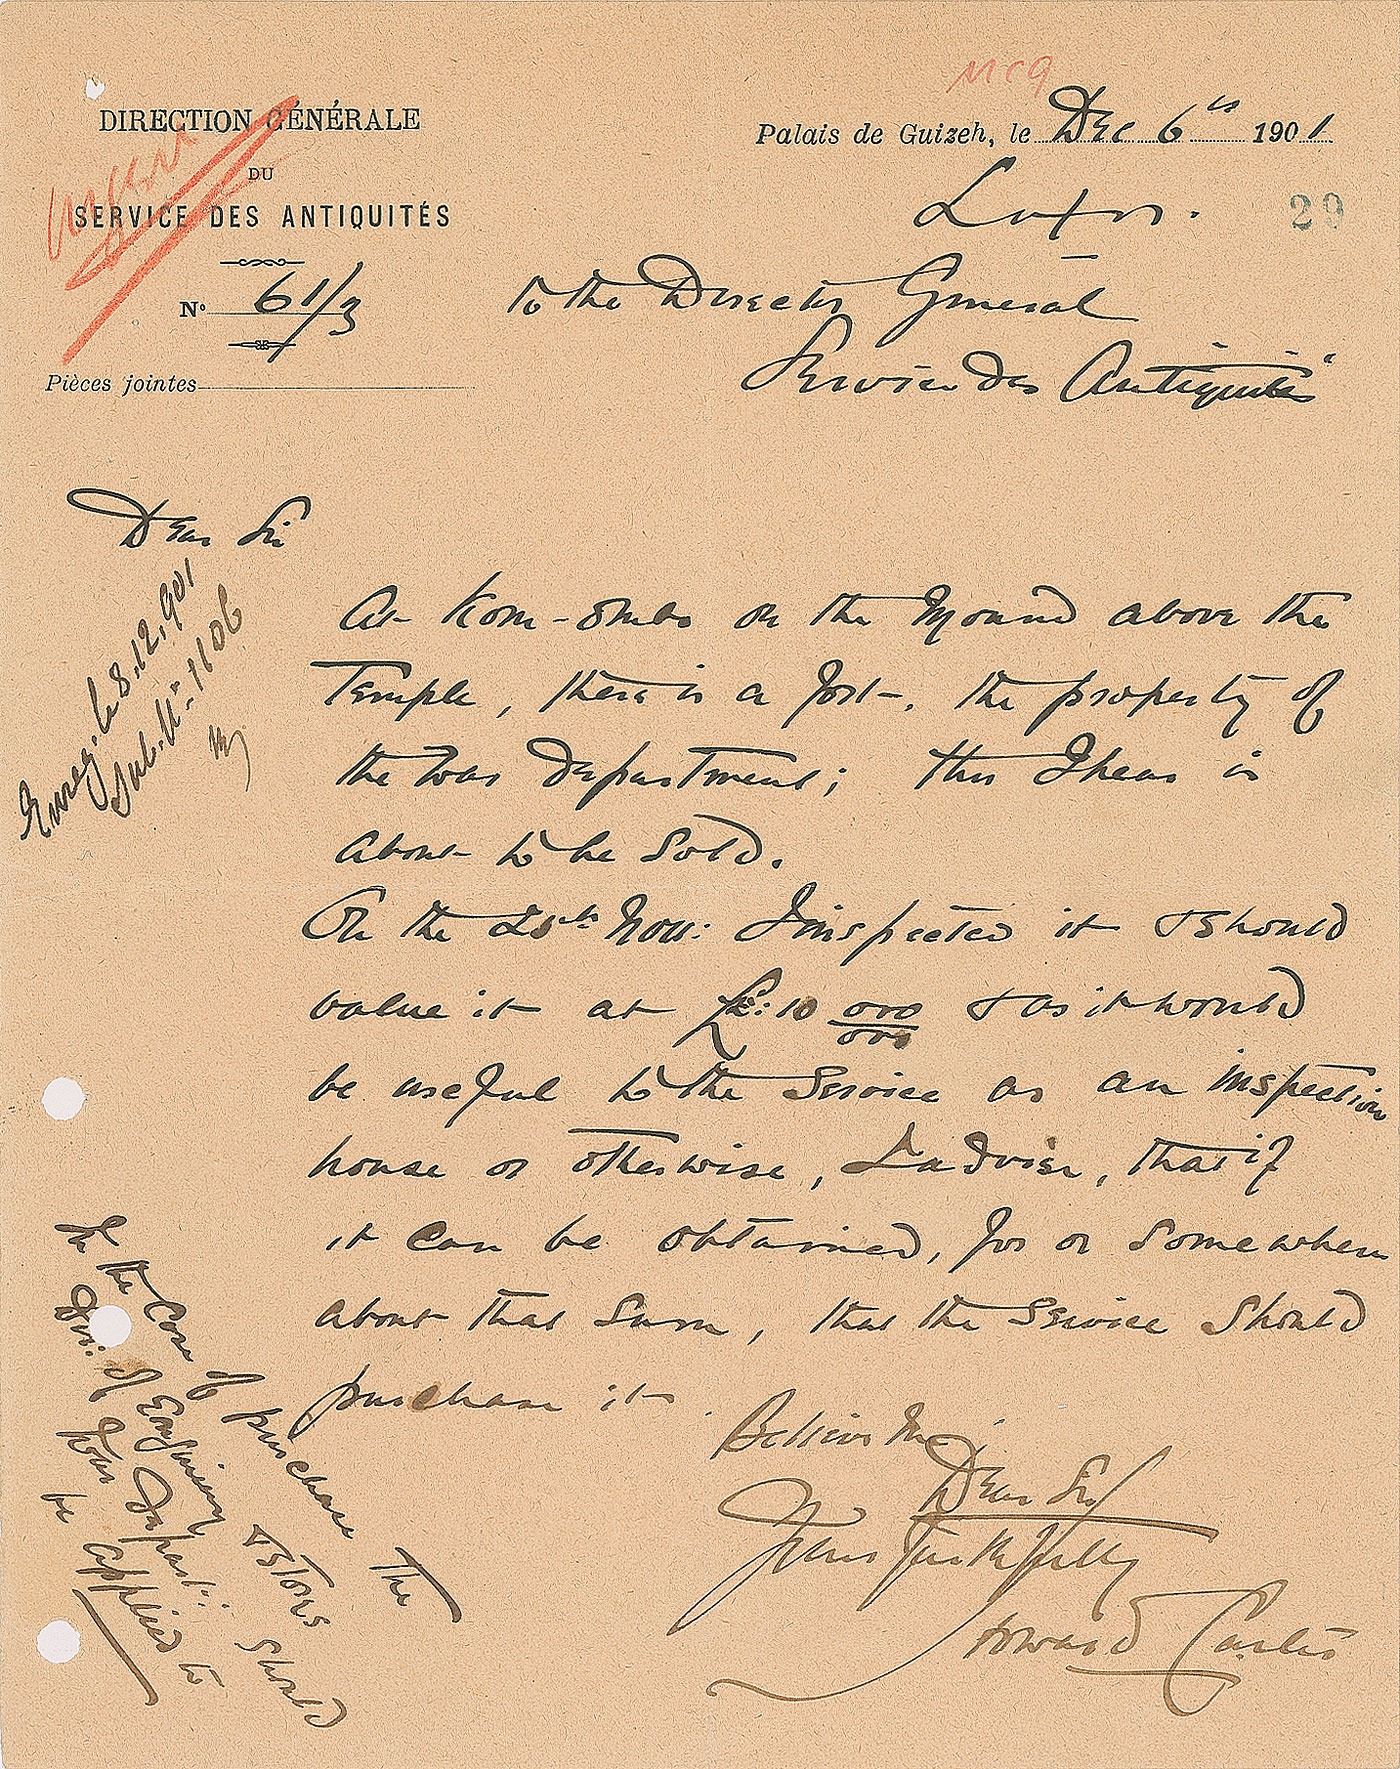 DIRECTION GÉNÉRALE
DU
SERVICE DES ANTIQUITÉS
Urgent
Nº 61/3
Pièces jointes
Palais de Guizeh, le Dec 6th 1901
Luxor.
29
To the Director General
Service des Antiquités
Dear Sir
Enreg. le 8.12.901
Sub. Nº 1106
At Kom-Ombo on the Mound above the
Temple, there is a fort, the property of
the War Department; this I hear is
about to be sold.
On the Nov: I inspected it & should
value it at £E: 10 000/000 & as it would
be useful to the Service as an inspection
house or otherwise, I advise, that if
it can be obtained, for or somewhere
about that sum, that the Service should
purchase it.
Believe Me
Dear Sir
Yours faithfully
Howard Carter
In the Case of purchase the
Dir: of Engineering & Stores should
War Depart:
be applied to